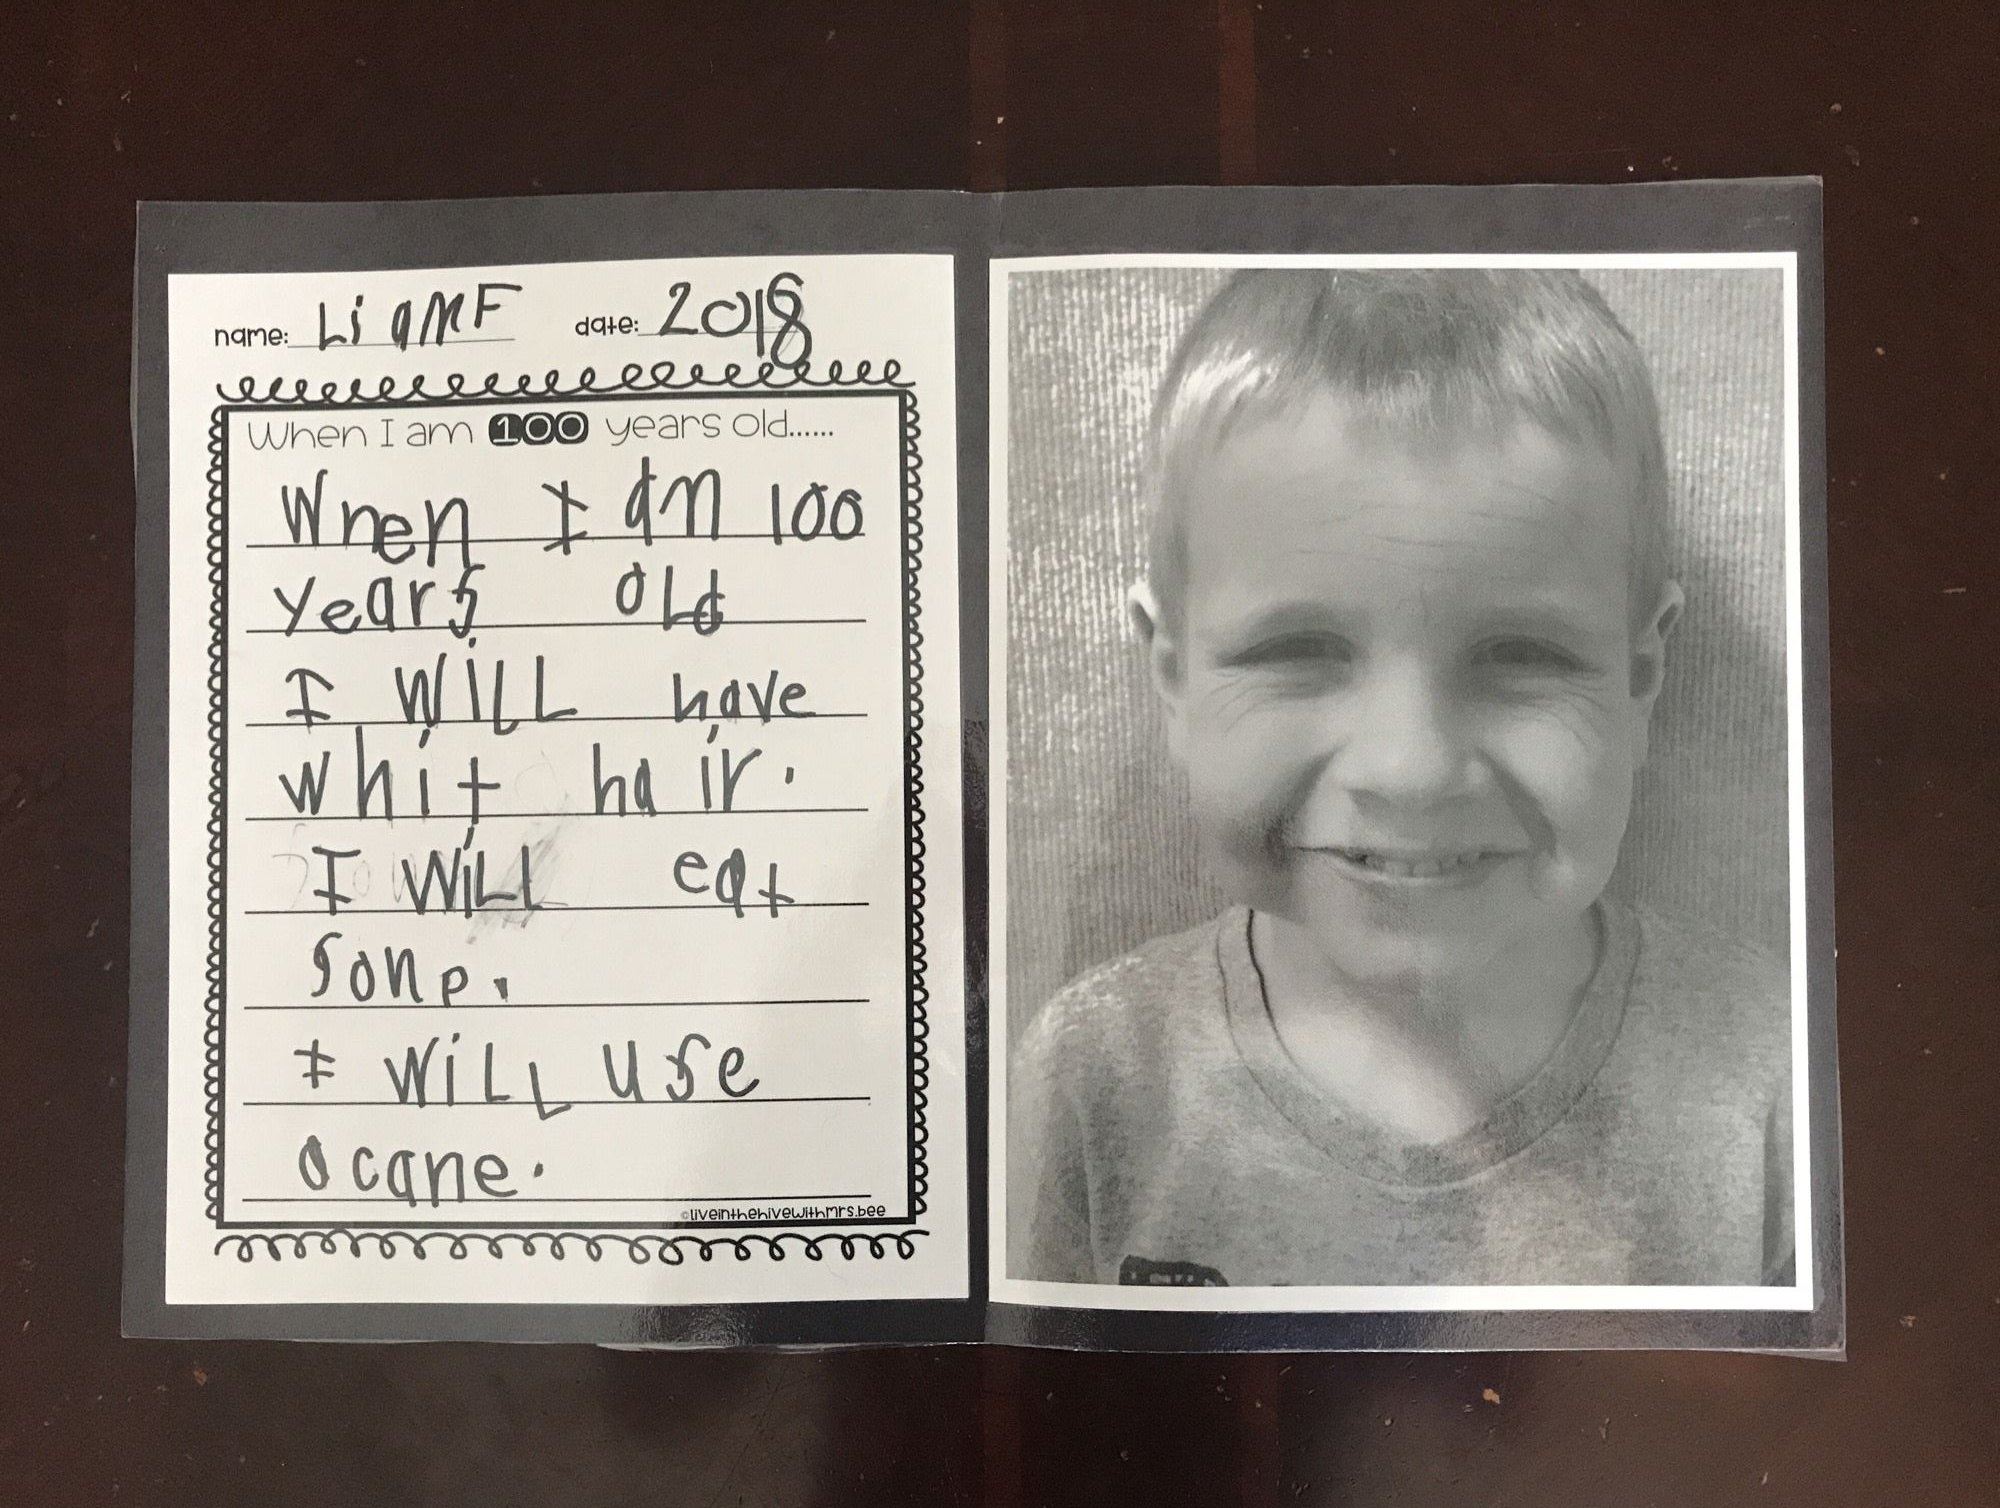 name: LiamF date: 2018
When I am 100 years old......
When I am 100
years old
I WiLL have
whit hair.
I WiLL eat
Soup.
I WiLL use
a cane.
©liveinthehivewithmrs.bee